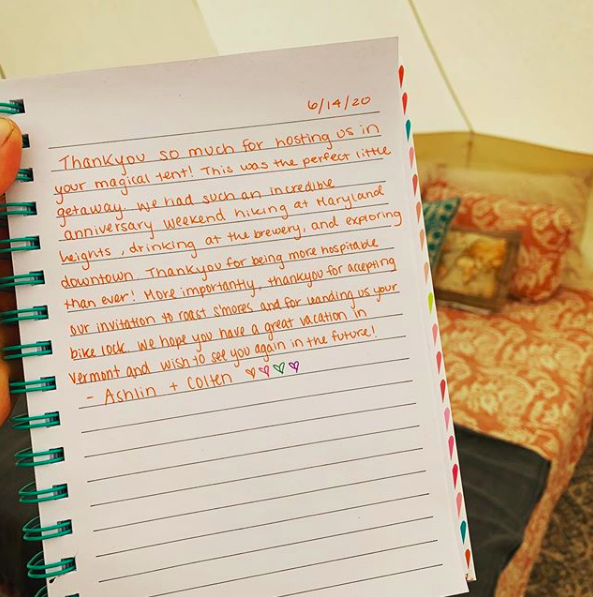 6/14/20
Thankyou so much for hosting us in
your magical tent! This was the perfect little
getaway. We had such an incredible
anniversary weekend hiking at Maryland
heights, drinking at the brewery, and exploring
downtown. Thankyou for being more hospitable
than ever! More importantly, thankyou for accepting
our invitation to roast s'mores and for lending us your
bike lock. We hope you have a great vacation in
Vermont and wish to see you again in the future!
- Ashlin + Colten ♡♡♡♡